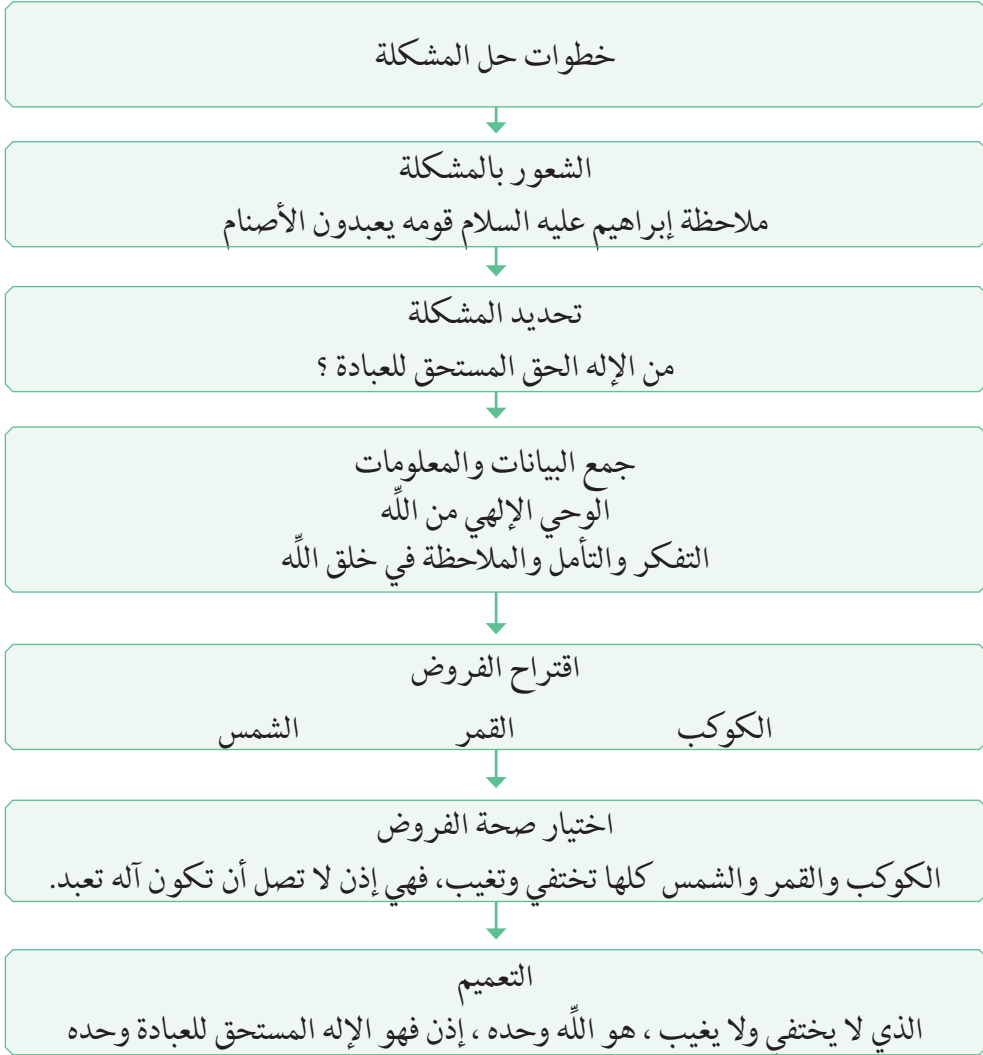 خطوات حل المشكلة
الشعور بالمشكلة
ملاحظة إبراهيم عليه السلام قومه يعبدون الأصنام
تحديد المشكلة
من الإله الحق المستحق للعبادة ؟
جمع البيانات والمعلومات
الوحي الإلهي من اللّٰه
التفكر والتأمل والملاحظة في خلق اللّٰه
اقتراح الفروض
الكوكب القمر الشمس
اختيار صحة الفروض
الكوكب والقمر والشمس كلها تختفي وتغيب، فهي إذن لا تصل أن تكون آله تعبد.
التعميم
الذي لا يختفي ولا يغيب ، هو اللّٰه وحده ، إذن فهو الإله المستحق للعبادة وحده